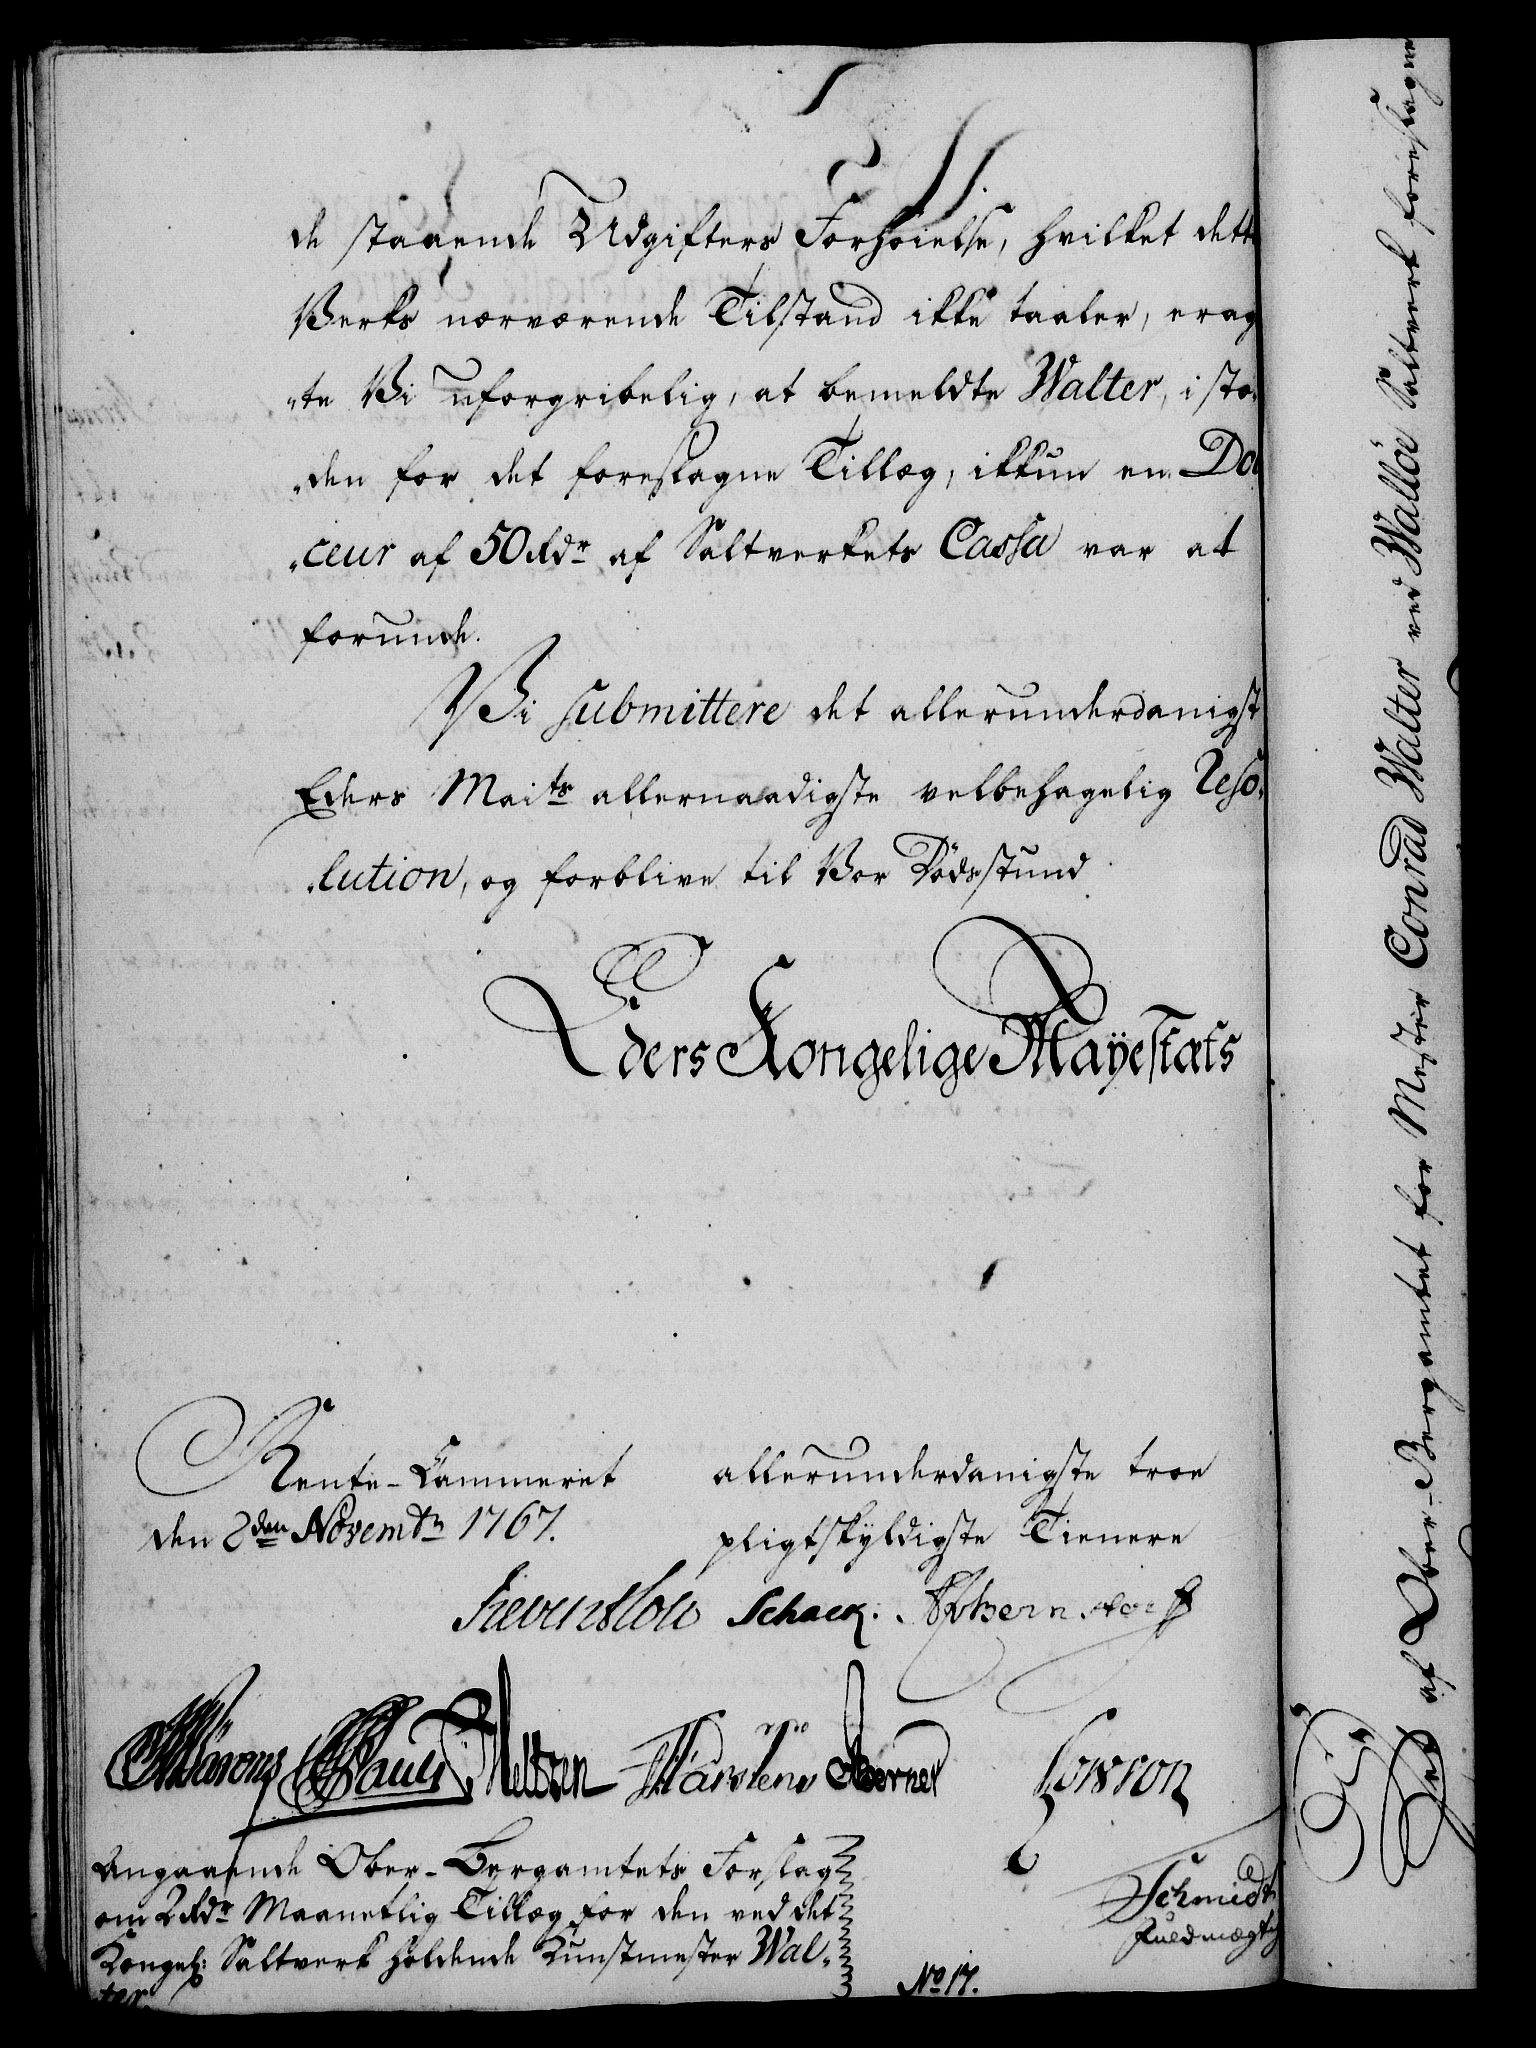 de staaende Udgifters Forhøielse, hvilket dette
Verks nærværende Tilstand ikke taaler, erag
„te Vi uforgribelig, at bemeldte Walter, i stæ„
„den for det foreslagne Tillæg, ikkun en Dou
„ceur af 50 Rdr af Saltverkets Cassa var at
forunde.
Vi submittere det allerunderdanigst
Eders Maits allernaadigste velbehagelig Reso„
„lution, og forblive til Vor Dödsstund
Eders Kongelige Mayestæts
Rente-Cammeret
den 2den Novembr 1767.
allerunderdanigste troe
pligtskyldigste Tienere
Reventlou Schack. Bernstorff
Pauli Meltzen Karstens Berner Lowson
Angaaende Ober-Bergamtets Forslag
om 2 Rdr Maanetlig Tillæg for den ved det
Kongel: Saltverk holdende Kunstmester Wal„
ter.
Schmidt
Fuldmægtig
No 17.
Det af Ober-Bergamtet for Mester Conrad Walter ved Walløe Saltverk foreslagne